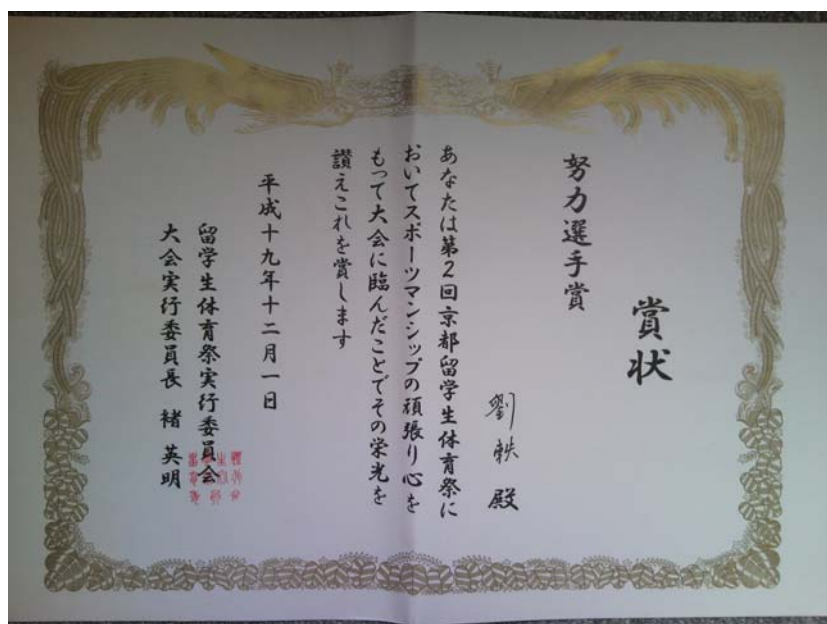 賞状
努力選手賞
劉軼 殿
あなたは第2回京都留学生体育祭に
おいてスポーツマンシップの頑張り心を
もって大会に臨んだことでその栄光を
讃えこれを賞します
平成十九年十二月一日
留学生体育祭実行委員会
大会実行委員長 褚 英明